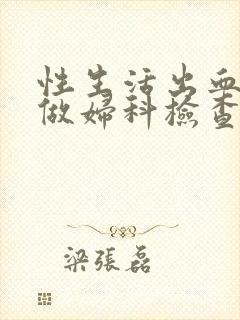 性生活出血
做婦科檢查
梁張磊